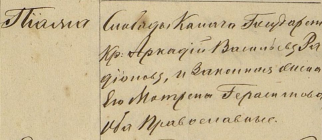 Слободы Качаго Государств
Кр. Аркадій Васильевъ Ра
діоновъ, и Законная жена
Его Матрена Герасимова
Оба Православные.